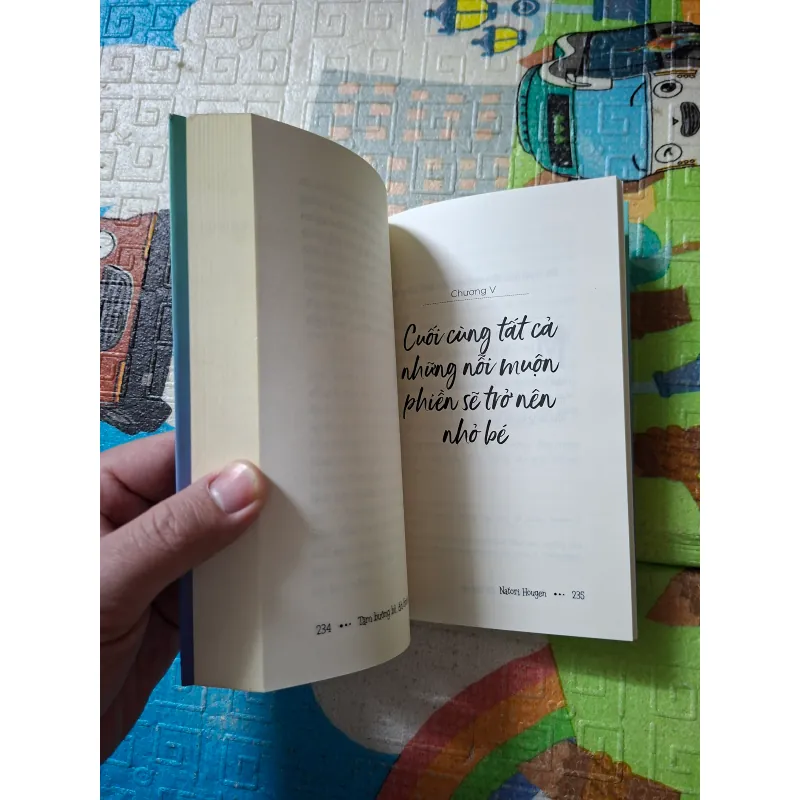 234 ••• Tâm buông bỏ, đời
Chương V
Cuối cùng tất cả
những nỗi muộn
phiền sẽ trở nên
nhỏ bé
Natori Hougen ••• 235